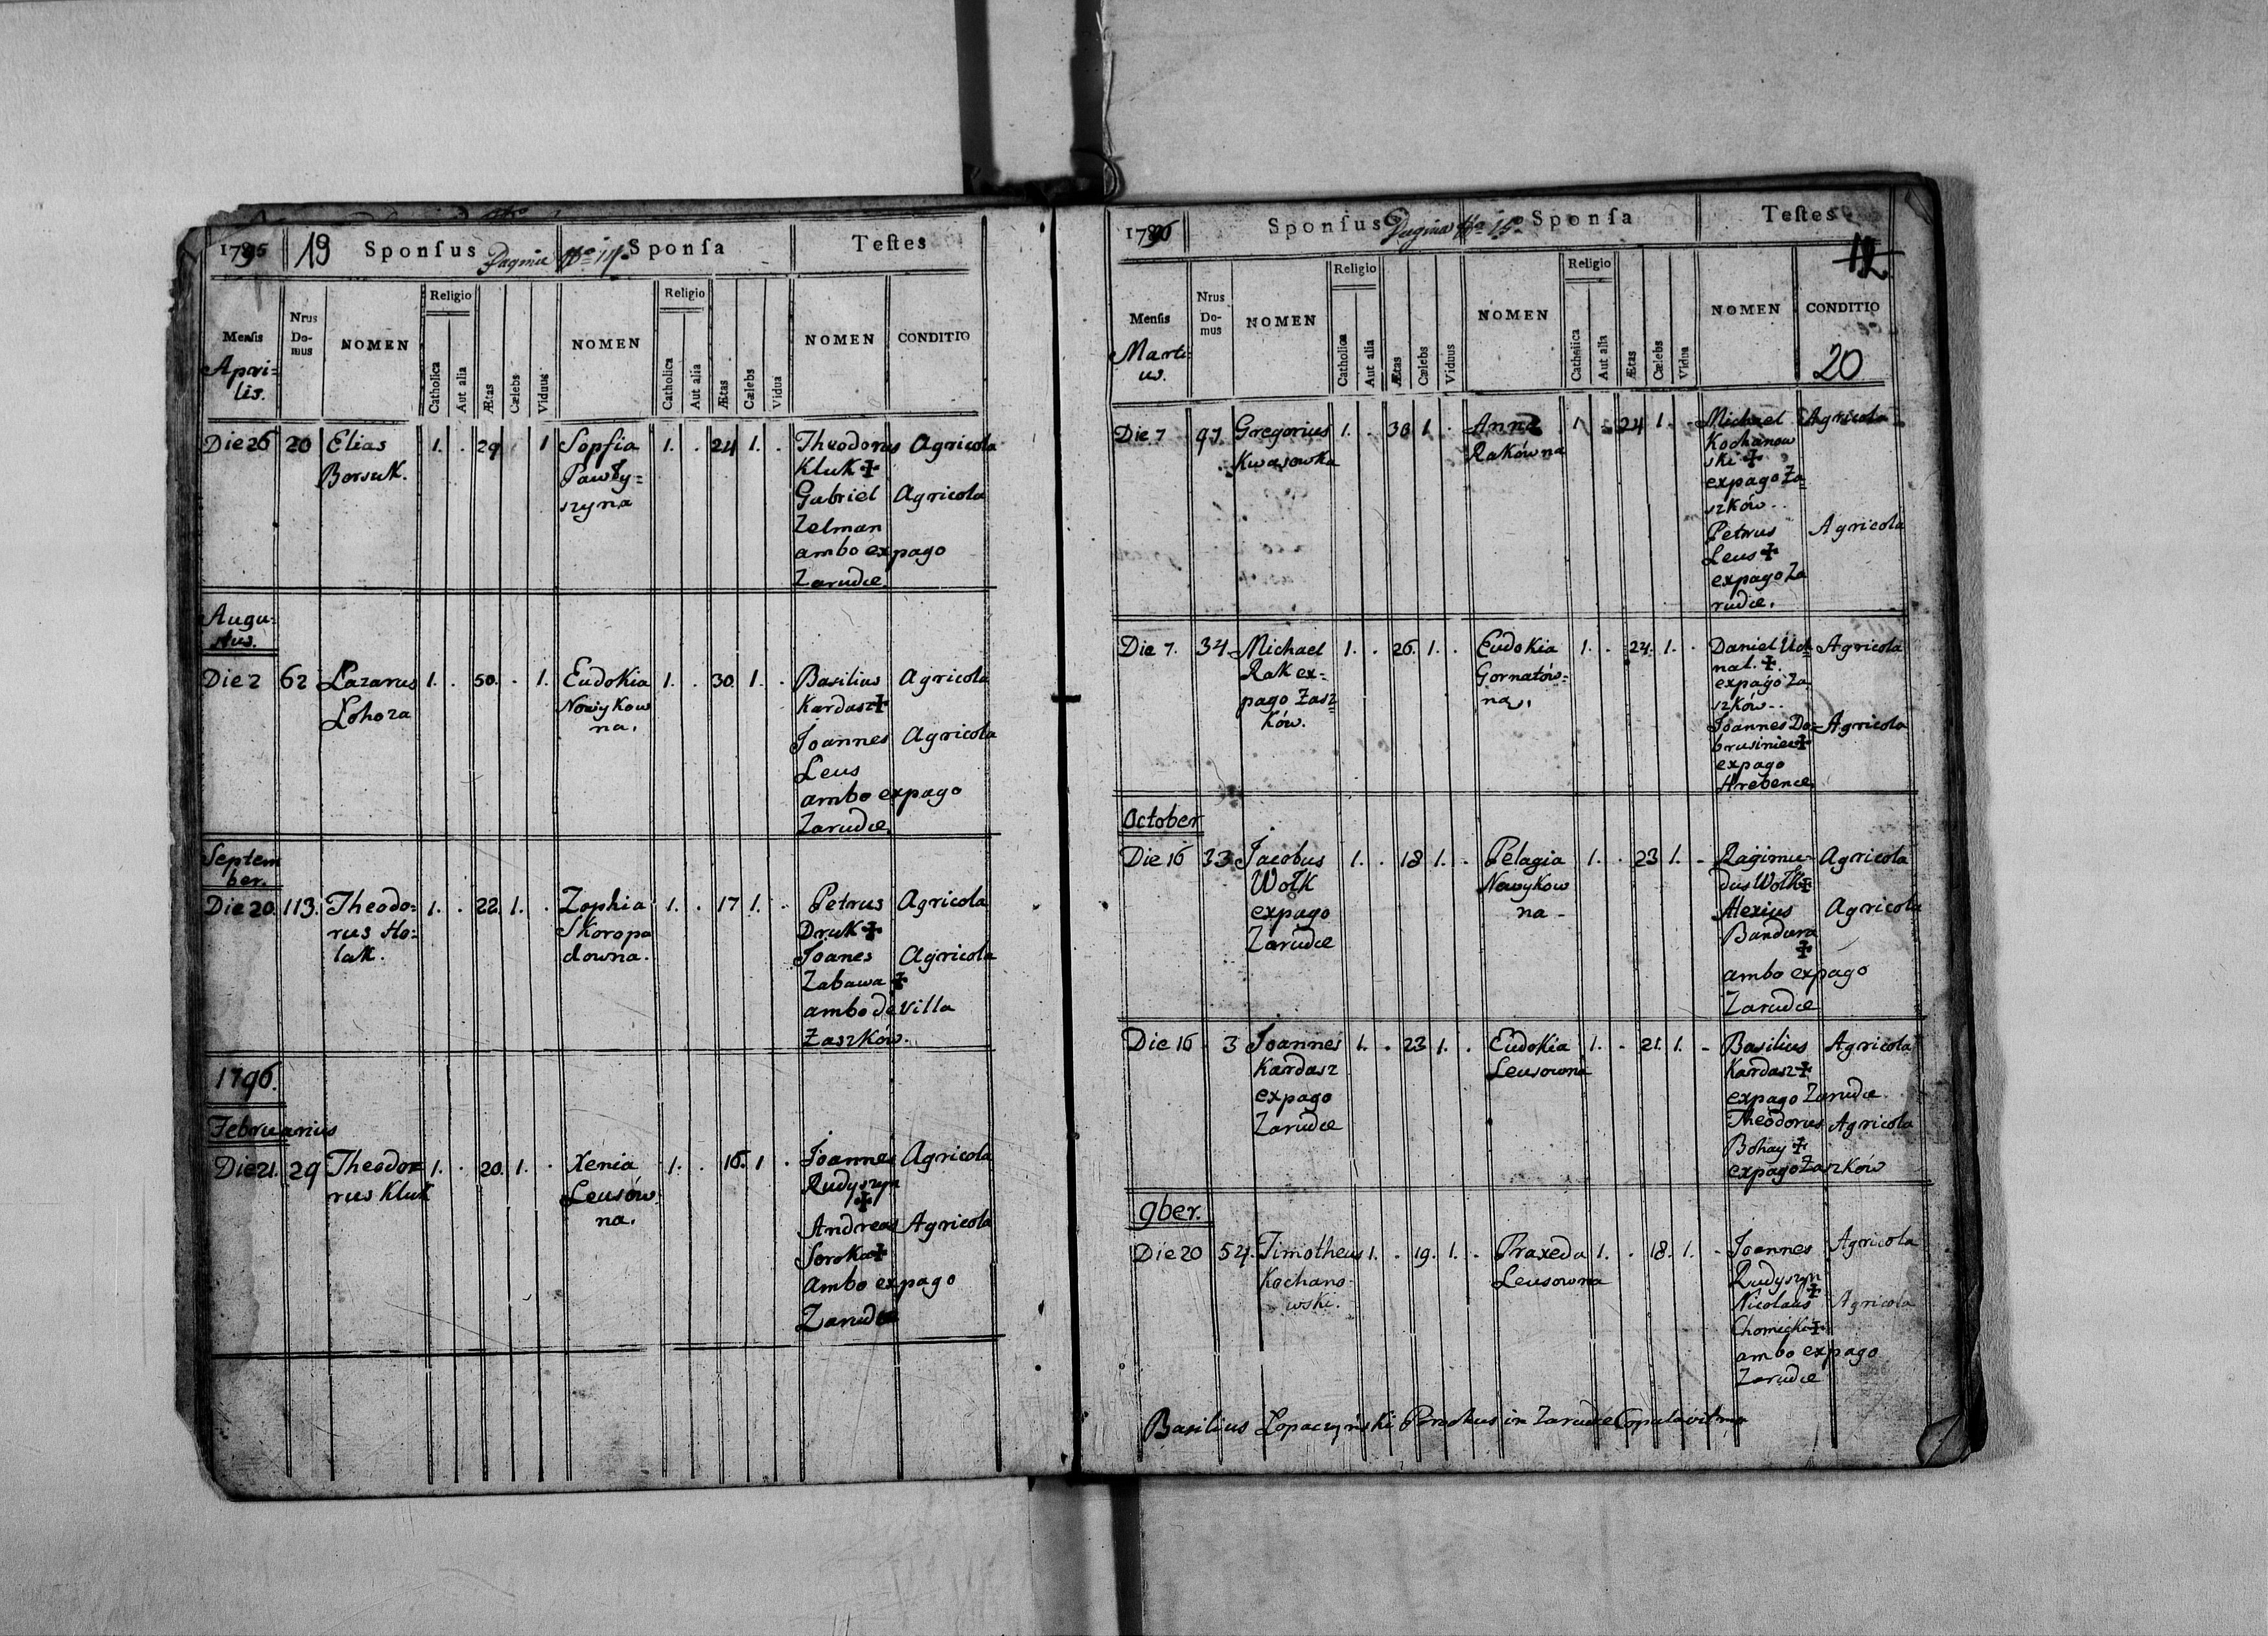 1795 19 Sponsus Pagina Nro 14 Sponsa Testes
Mensis Nrus Domus NOMEN Religio Catholica Aut alia Ætas Cælebs Viduus NOMEN Religio Catholica Aut alia Ætas Cælebs Vidua NOMEN CONDITIO
Apri=
lis.
Die 26 20 Elias 1. . 29 1 Sopfia 1. . 24 1. . Theodorus Agricola
Borsuk. Pawły= Kluk ✠
szyna Gabriel Agricola
Zelman
ambo ex pago
Zarudce.
Augu=
stus.
Die 2 62 Lazarus 1. . 50. . 1. Eudokia 1. . 30 1. . Basilius Agricola
Lohoza Nowykow Kardasz ✠
na. Joannes Agricola
Leus
ambo ex pago
Zarudce.
Septem
ber.
Die 20. 113. Theodo= 1. . 22. 1. . Zophia 1. . 17 1. . Petrus Agricola
rus Ho= Skoropa Druk ✠
lak. downa. Joanes Agricola
Zabawa ✠
ambo de villa
Zaszków.
1796.
Februarius
Die 21. 29 Theodo 1. . 20. 1. . Xenia 1. . 16. 1 . Joannes Agricola
rus Kluk Leusów Rudyszyn
na. ✠
Andreas Agricola
Soroka ✠
Ambo ex pago
Zarudce
1796 Sponsus Pagina Nro 15 Sponsa Testes
12
Mensis Nrus Domus NOMEN Religio Catholica Aut alia Ætas Cælebs Viduus NOMEN Religio Catholica Aut alia Ætas Cælebs Vidua NOMEN CONDITIO
Marti
us. 20
Die 7 97. Gregorius 1. . 30 1. . Anna 1 . 24 1. . Michael Agricola
Kwasowka Rakówna Kochanow
ski ✠
ex pago Za=
szków..
Petrus Agricola
Leus ✠
ex pago Za
rudce.
Die 7. 34 Michael 1. . 26. 1. . Eudokia 1. . 24. 1. . Daniel Agricola
Rak ex= Gornatów= nal. ✠.
pago Zasz= na. ex pago Za
ków. szków..
Joannes Do= Agricola
brusiniew ✠
ex pago
Hrebence.
October
Die 16 33 Jacobus 1. . 18 1. . Pelagia 1. . 23 1. - Ragimu= Agricola
Wołk Nowykow dus Wołk ✠
ex pago na - Alexius Agricola
Zarudce Bandura
✠
ambo ex pago
Zarudce
Die 16 3 Joannes 1. . 23 1. . Eudokia 1. . 21. 1. - Basilius Agricola
Kardasz Leusowna Kardasz ✠
ex pago ex pago Zarudce.
Zarudce Theodorus Agricola
Bohay ✠
ex pago Zaszków
9ber.
Die 20 54. Timotheus 1. . 19. 1. . Praxeda 1. . 18. 1. - Joannes Agricola
Kochano= Leusowna Rudyszyn
wski. ✠
Nicolaus Agricola
Chomicki ✠
ambo ex pago
Zarudce
Basilius Lopaczyński Parochus in Zarudce Copulavit mp